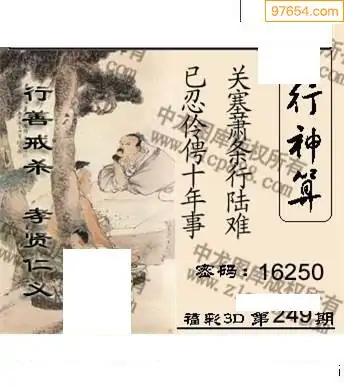 97654.com
行神算
关塞萧条行陆难
已忍伶俜十年事
行善戒杀 孝贤仁义
密码：16250
福彩3D 第249期
中龙图库版权所有